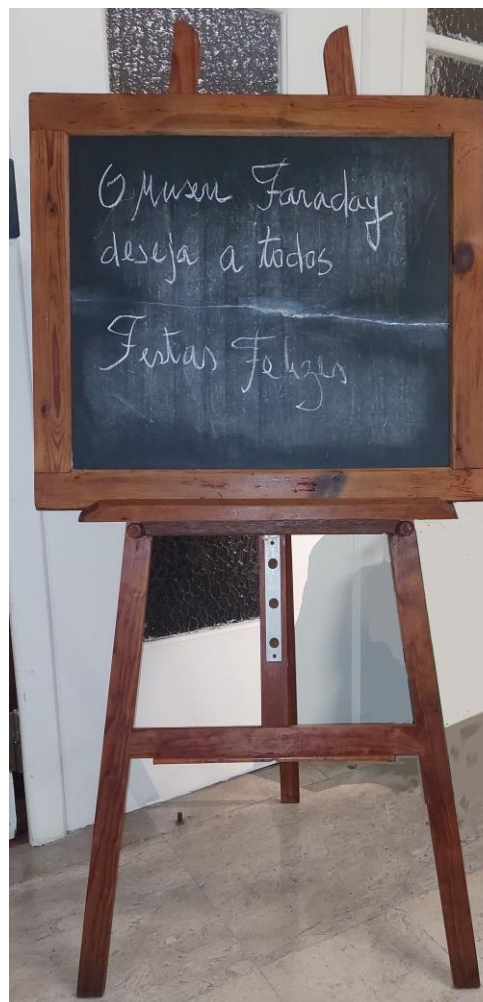 O Museu Faraday
deseja a todos
Festas Felizes